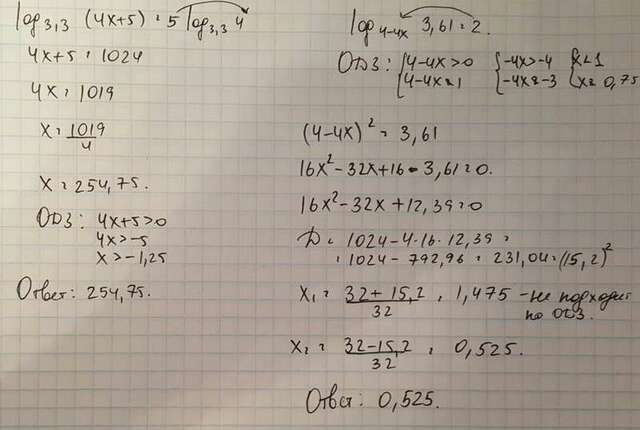 log₃,₃ (4x+5) = 5 log₃,₃ 4
4x+5 = 1024
4x = 1019
x = 1019/4
x = 254,75.
ОДЗ: 4x+5>0
4x>-5
x>-1,25
Ответ: 254,75.
log₄₋₄ₓ 3,61 = 2.
ОДЗ: {4-4x>0 {-4x>-4 {x<1
4-4x≠1 -4x≠-3 x≠0,75
(4-4x)² = 3,61
16x²-32x+16-3,61=0.
16x²-32x+12,39=0
D = 1024-4·16·12,39=
= 1024-792,96 = 231,04 = (15,2)²
x₁ = 32+15,2/32 = 1,475 - не подходит
по ОДЗ.
x₂ = 32-15,2/32 = 0,525.
Ответ: 0,525.